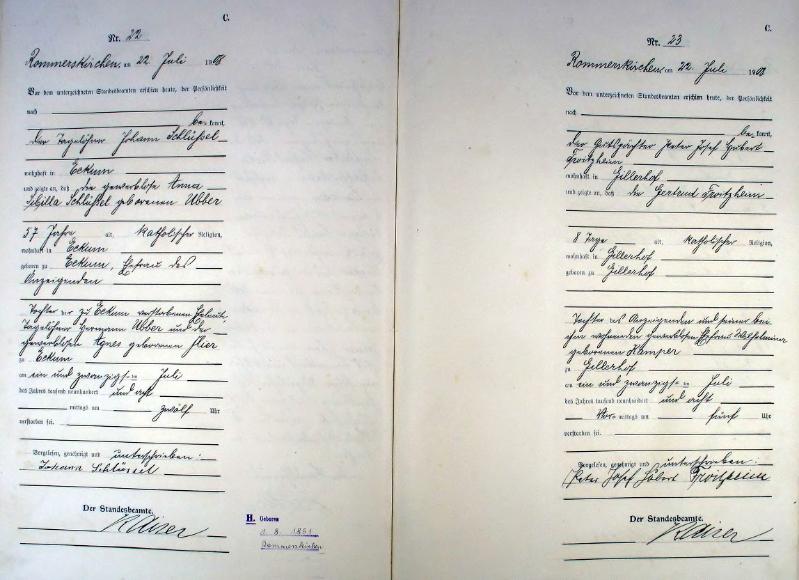 C.
Nr. 22
Rommerskirchen, am 22. Juli 1908
Vor dem unterzeichneten Standesbeamten erschien heute, der Persönlichkeit
nach
be kannt,
der Tagelöhner Johann Schlüssel
wohnhaft in Eckum
und zeigte an, daß die gewerblose Anna
Sibilla Schlüssel geborenen Übber
57 Jahre alt, katholischer Religion,
wohnhaft in Eckum
geboren zu Eckum, Ehefrau des
Anzeigenden
Tochter der zu Eckum verstorbenen Eheleute
Tagelöhner Hermann Übber und der
gewerblosen Agnes geborenen
zu Eckum
am ein und zwanzigsten Juli
des Jahres tausend neunhundert und acht
mittags um zwölf Uhr
verstorben sei.
Vorgelesen, genehmigt und unterschrieben:
Johann Schlüssel
Der Standesbeamte.
Kaiser
H. Geboren
8. 1851
Rommerskirchen
C.
Nr. 23
Rommerskirchen, am 22. Juli 1908
Vor dem unterzeichneten Standesbeamten erschien heute, der Persönlichkeit
nach
be kannt,
der Gutspächter Peter Josef Hubert
Troitzheim
wohnhaft in Gillerhof
und zeigte an, daß die Gertrud Troitzheim
8 Tage alt, katholischer Religion,
wohnhaft in Gillerhof
geboren zu Gillerhof
Tochter des Anzeigenden und seiner bei
ihm wohnenden gewerblosen Ehefrau
geborenen Kamper
zu Gillerhof
am ein und zwanzigsten Juli
des Jahres tausend neunhundert und acht
Vor mittags um fünf Uhr
verstorben sei.
Vorgelesen, genehmigt und unterschrieben:
Peter Josef Hubert Troitzheim
Der Standesbeamte.
Kaiser